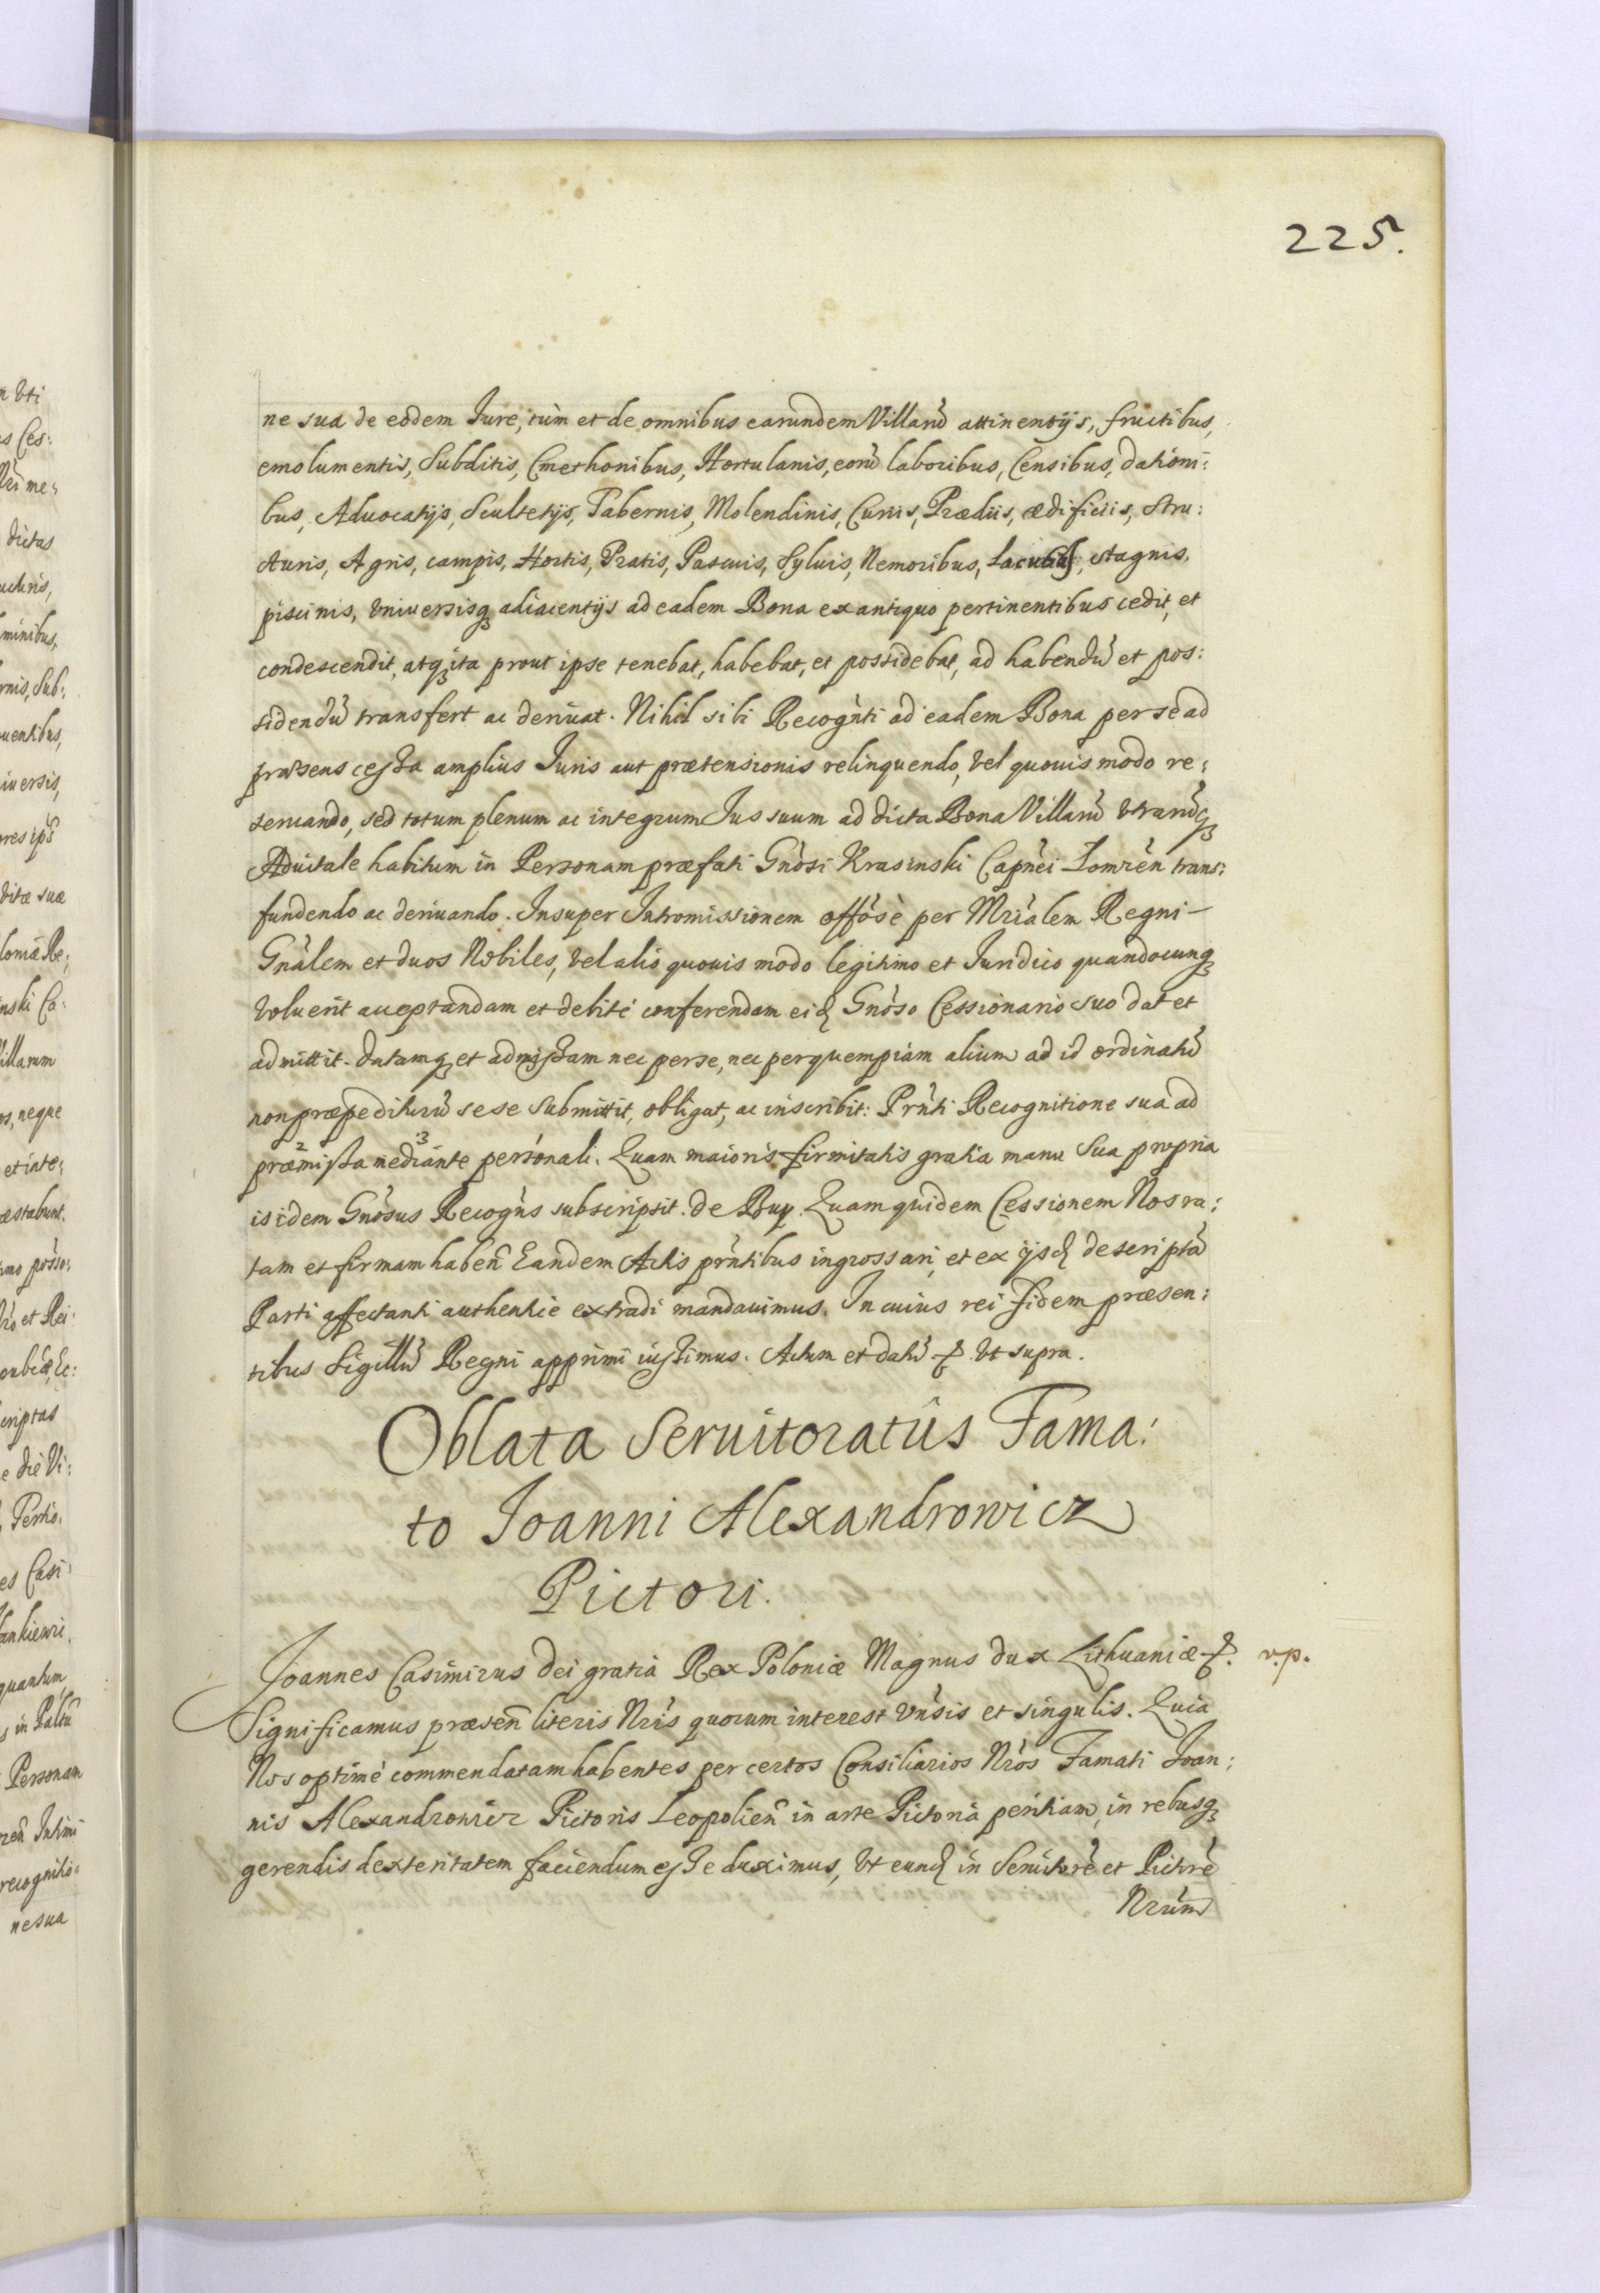 225.
ne sua de eodem Jure, tùm et de omnibus earundem Villarũ attinentijs, fructibus,
emolumentis, Subditis, Cmethonibus, Hortulanis, eorũ laboribus, Censibus, dationi:
bus, Aduocatijs, Scultetijs, Tabernis, Molendinis, Curiis, Prædiis, ædificiis, Stru:
cturis, Agris, campis, Hortis, Pratis, Pascuis, Syluis, Nemoribus, Lacubus, Stagnis.
piscinis, Vniuersisqꝫ adiacentijs ad eadem Bona ex antiquo pertinentibus cedit, et
condescendit, atqꝫ ita prout ipse tenebat, habebat, et possidebat, ad habendũ et pos:
sidendũ transfert ac deriuat. Nihil sibi Recognti ad eadem Bona per se ad
præsens cessa amplius Juris aut prætensionis relinquendo, Vel quouis modo re:
seruando, sed totum plenum ac integrum Jus suum ad dicta Bona Villarũ Vtrarũqꝫ
Aduitale habitum in Personam præfati Gnosi Krasinski Capnei Lomzen trans:
fundendo ac deriuando. Insuper Intromissionem offosè per Mrialem Regni
Gnalem et duos Nobiles, Vel alio quouis modo legitimo et Juridico quandocunqꝫ
Voluerit acceptandam et debitè conferendam eid Gnoso Cessionario suo dat et
admittit. Datamqꝫ et admissam nec per se, nec per quempiam alium ad id ordinatũ
non præpediturũ sese Submittit, obligat, ac inscribit: Prnti Recognitione sua ad
præmissa mediante personali. Quam maioris firmitatis gratia manu Sua propria
is idem Gnosus Recogns subscripsit. de Buy. Quam quidem Cessionem Nos ra:
tam et firmam haben Eandem Actis prntibus ingrossari, et ex ijsd descriptã
Parti affectanti authentice extradi mandauimus. In cuius rei fidem præsen:
tibus Sigillũ Regni apprimi iussimus. Actum et datũ &. Vt supra.
Oblata Seruitoratûs Fama:
to Joanni Alexandrowicz
Pictori.
Joannes Casimirus Dei gratia Rex Poloniæ Magnus dux Lithuaniæ &. v.p.
Significamus præsen literis Nris quorum interest Vnsis et singulis. Quia
Nos optimè commendatam habentes per certos Consiliarios Nros Famati Joan:
nis Alexandrowicz Pictoris Leopolien in arte Pictoria peritiam, in rebusqꝫ
gerendis dexteritatem faciendum esse duximus, Vt eund in Seruitorẽ et Pictorẽ
Nrum